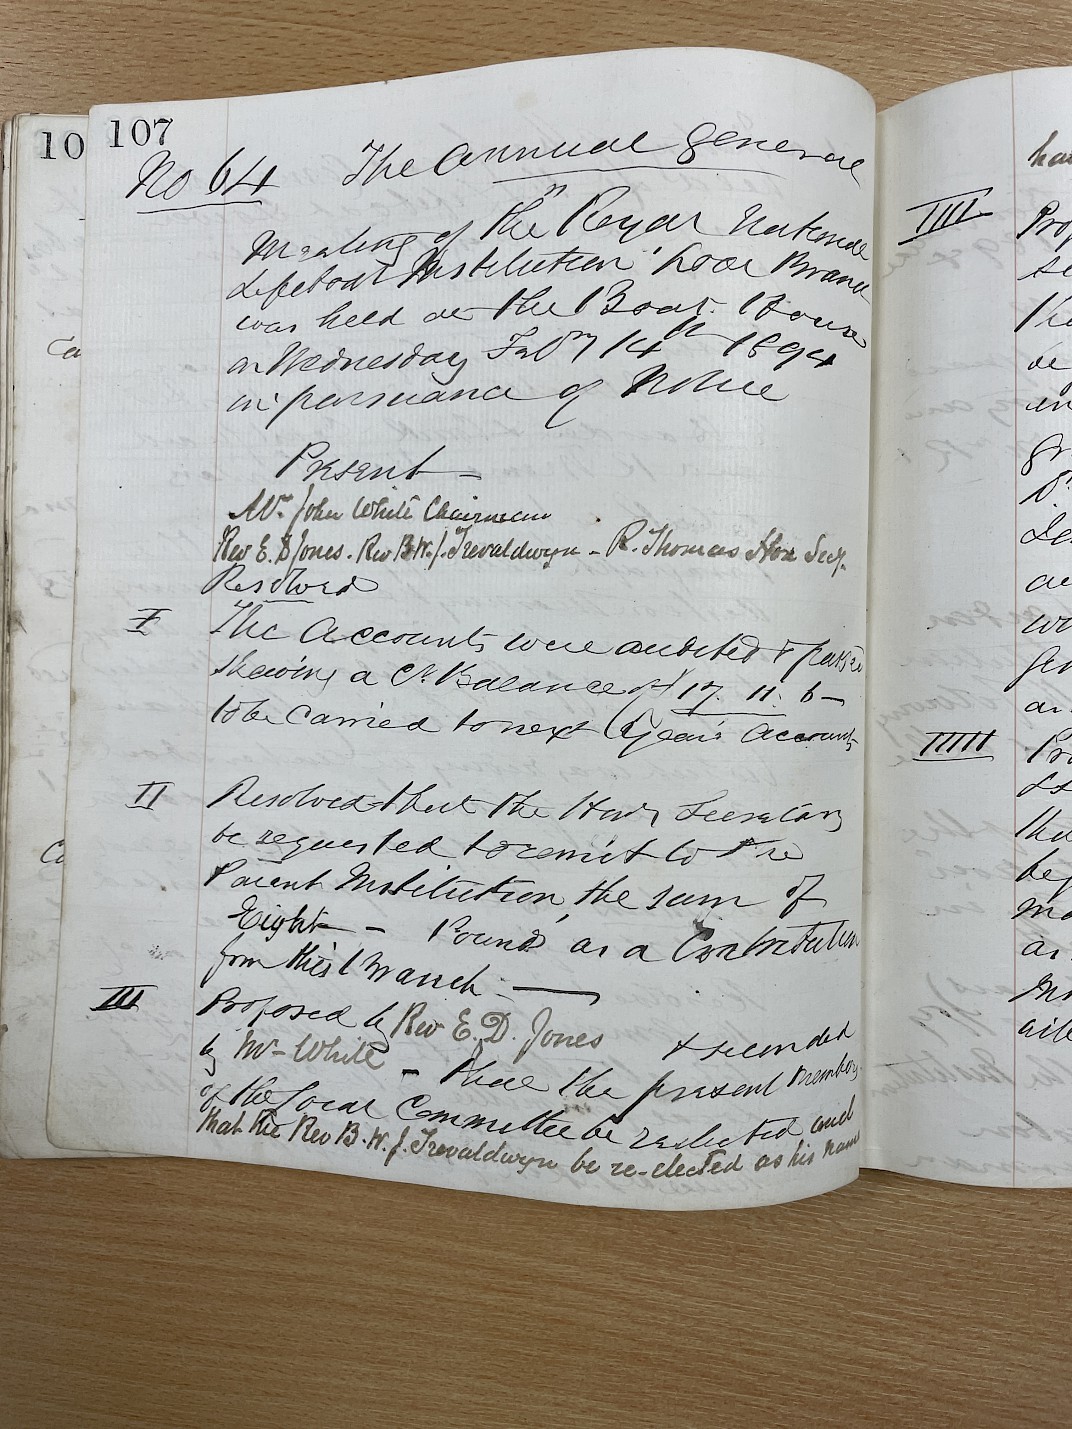 10
107
No 64 The Annual General
Meeting of the "Royal National
Lifeboat Institution" Looe Branch
was held at the Boat House
on Wednesday Feb'y 14th 1894
in pursuance of Notice
Present
Mr John White Chairman
Rev E. D Jones. Rev B. W. J. Trevaldwyn - R. Thomas Hon Secy.
Resolved
I The Accounts were audited & passed
shewing a Cr Balance of £17. 11. 6
to be carried to next Year's Accounts
II Resolved that the Hon'y Secretary
be requested to remit to the
Parent Institution, the sum of
Eight - Pounds as a Contribution
from this Branch.
III Proposed by Rev E. D. Jones & seconded
by Mr White - that the present Members
of the Local Committee be reelected and
that the Rev B. W. J. Trevaldwyn be re-elected as his name
IIII
IIIII